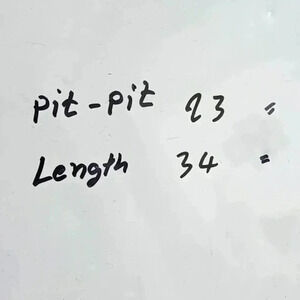 Pit - Pit 23 "
Length 34 "